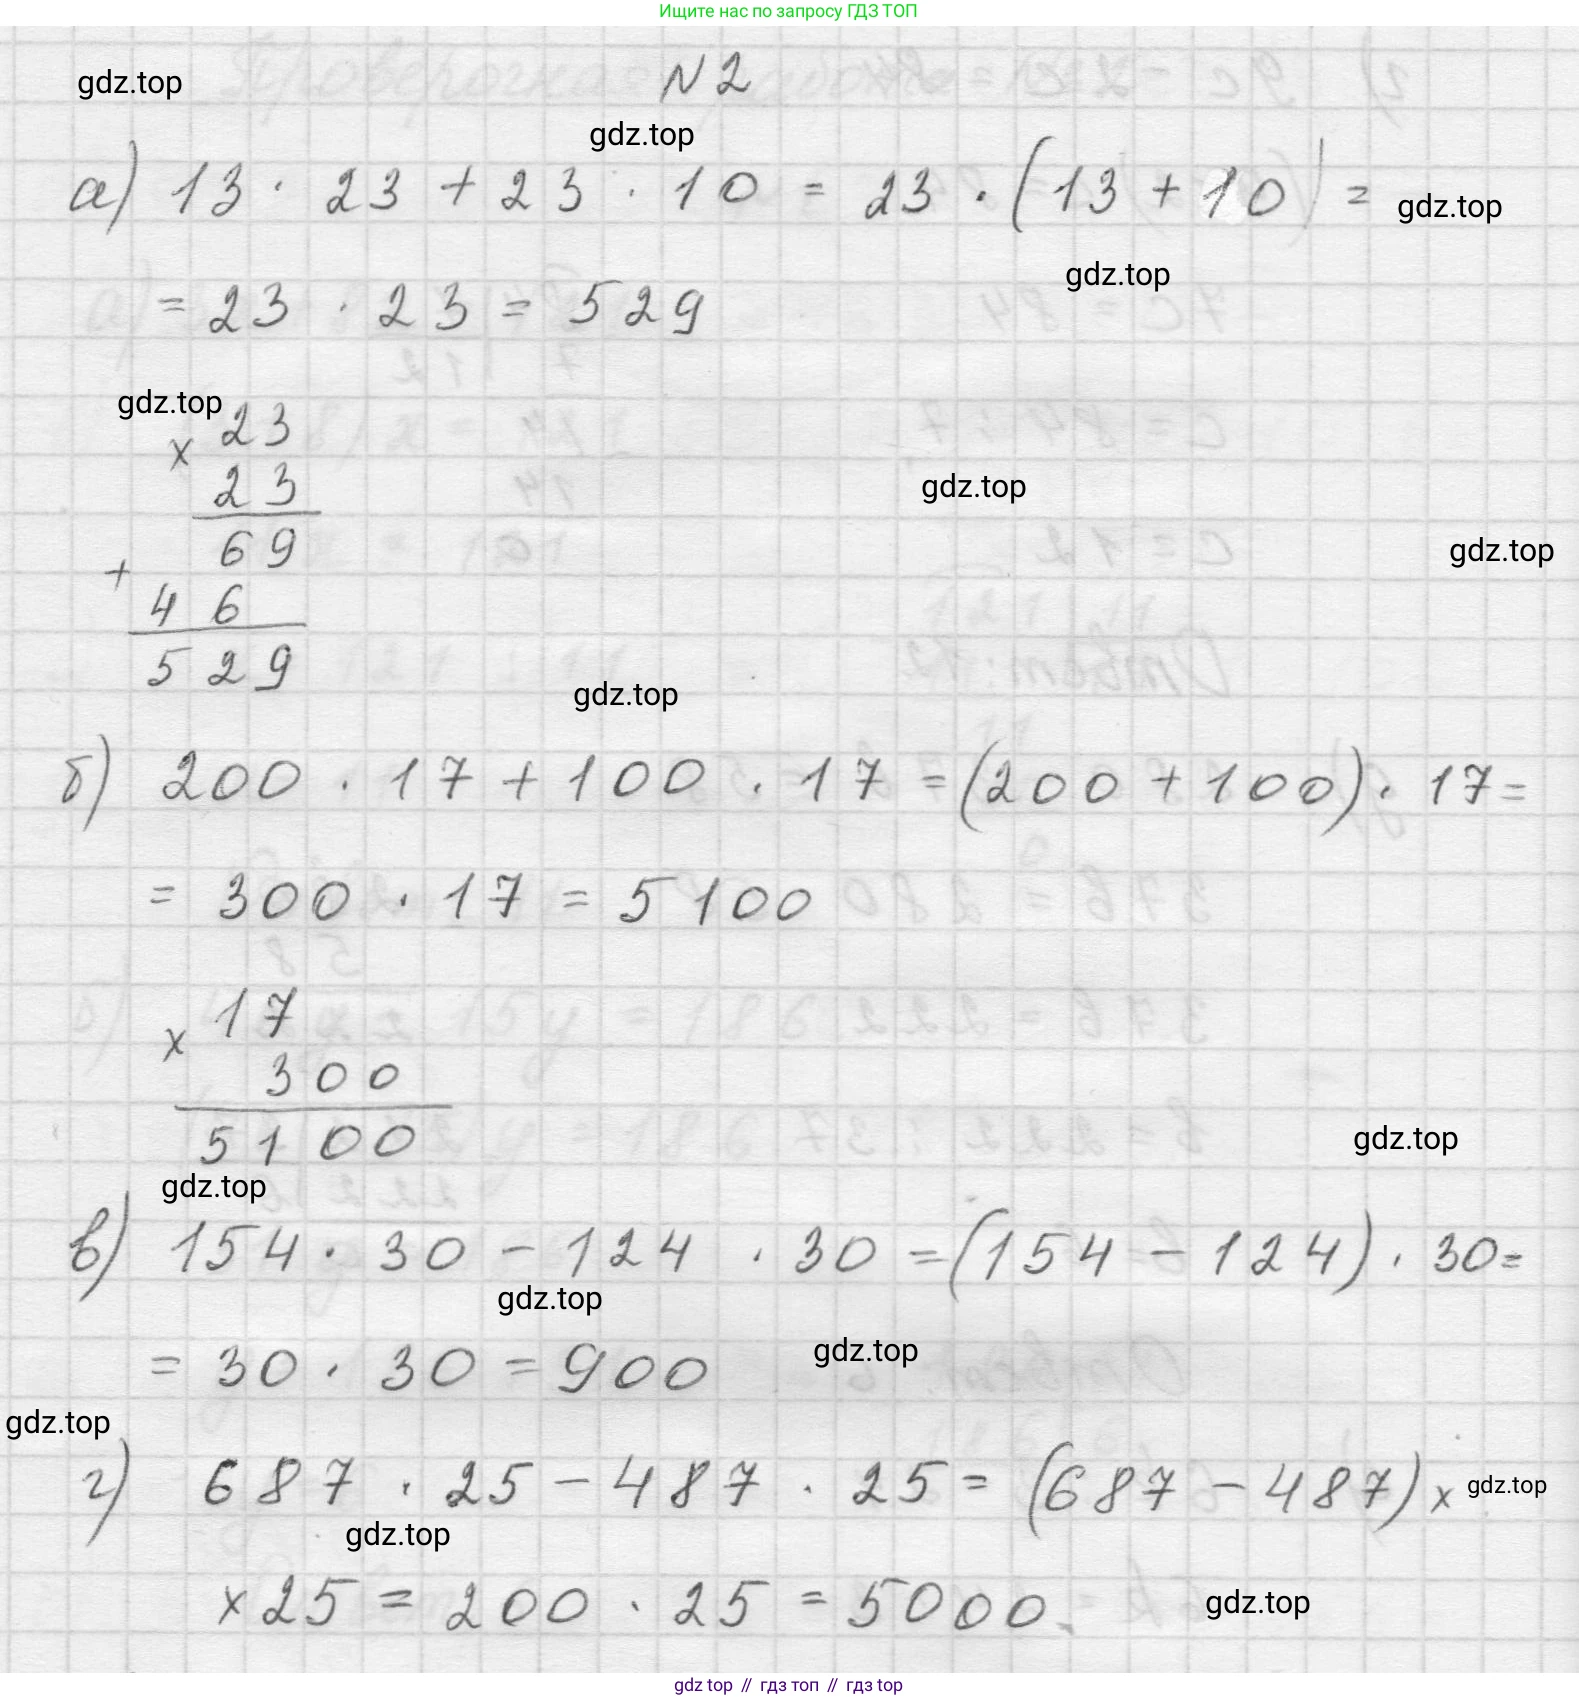 Ищите нас по запросу ГДЗ ТОП
N 2
gdz.top
gdz.top
а) 13 · 23 + 23 · 10 = 23 · (13 + 10) =
gdz.top
gdz.top
= 23 · 23 = 529
gdz.top
23
x
23
gdz.top
69
gdz.top
+
46
529
gdz.top
б) 200 · 17 + 100 · 17 = (200 + 100) · 17 =
= 300 · 17 = 5100
17
x
300
5100
gdz.top
gdz.top
в) 154 · 30 - 124 · 30 = (154 - 124) · 30 =
gdz.top
= 30 · 30 = 900
gdz.top
gdz.top
г) 687 · 25 - 487 · 25 = (687 - 487) x
gdz.top
gdz.top
x 25 = 200 · 25 = 5000.
gdz.top
gdz top // гдз топ // гдз top